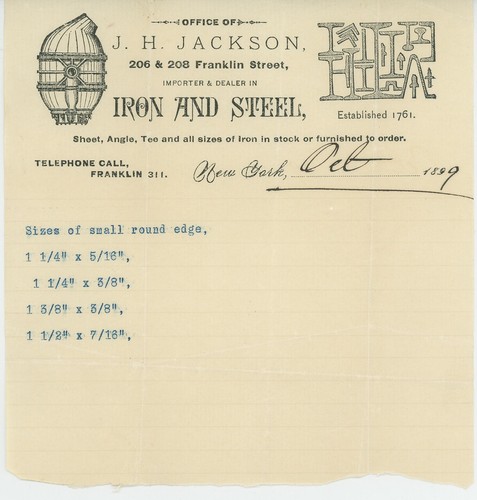 OFFICE OF
J. H. JACKSON,
206 & 208 Franklin Street,
IMPORTER & DEALER IN
IRON AND STEEL,
Established 1761.
Sheet, Angle, Tee and all sizes of Iron in stock or furnished to order.
TELEPHONE CALL,
FRANKLIN 311.
New York, Oct 1899
Sizes of small round edge,
1 1/4" x 5/16",
1 1/4" x 3/8",
1 3/8" x 3/8",
1 1/2" x 7/16",